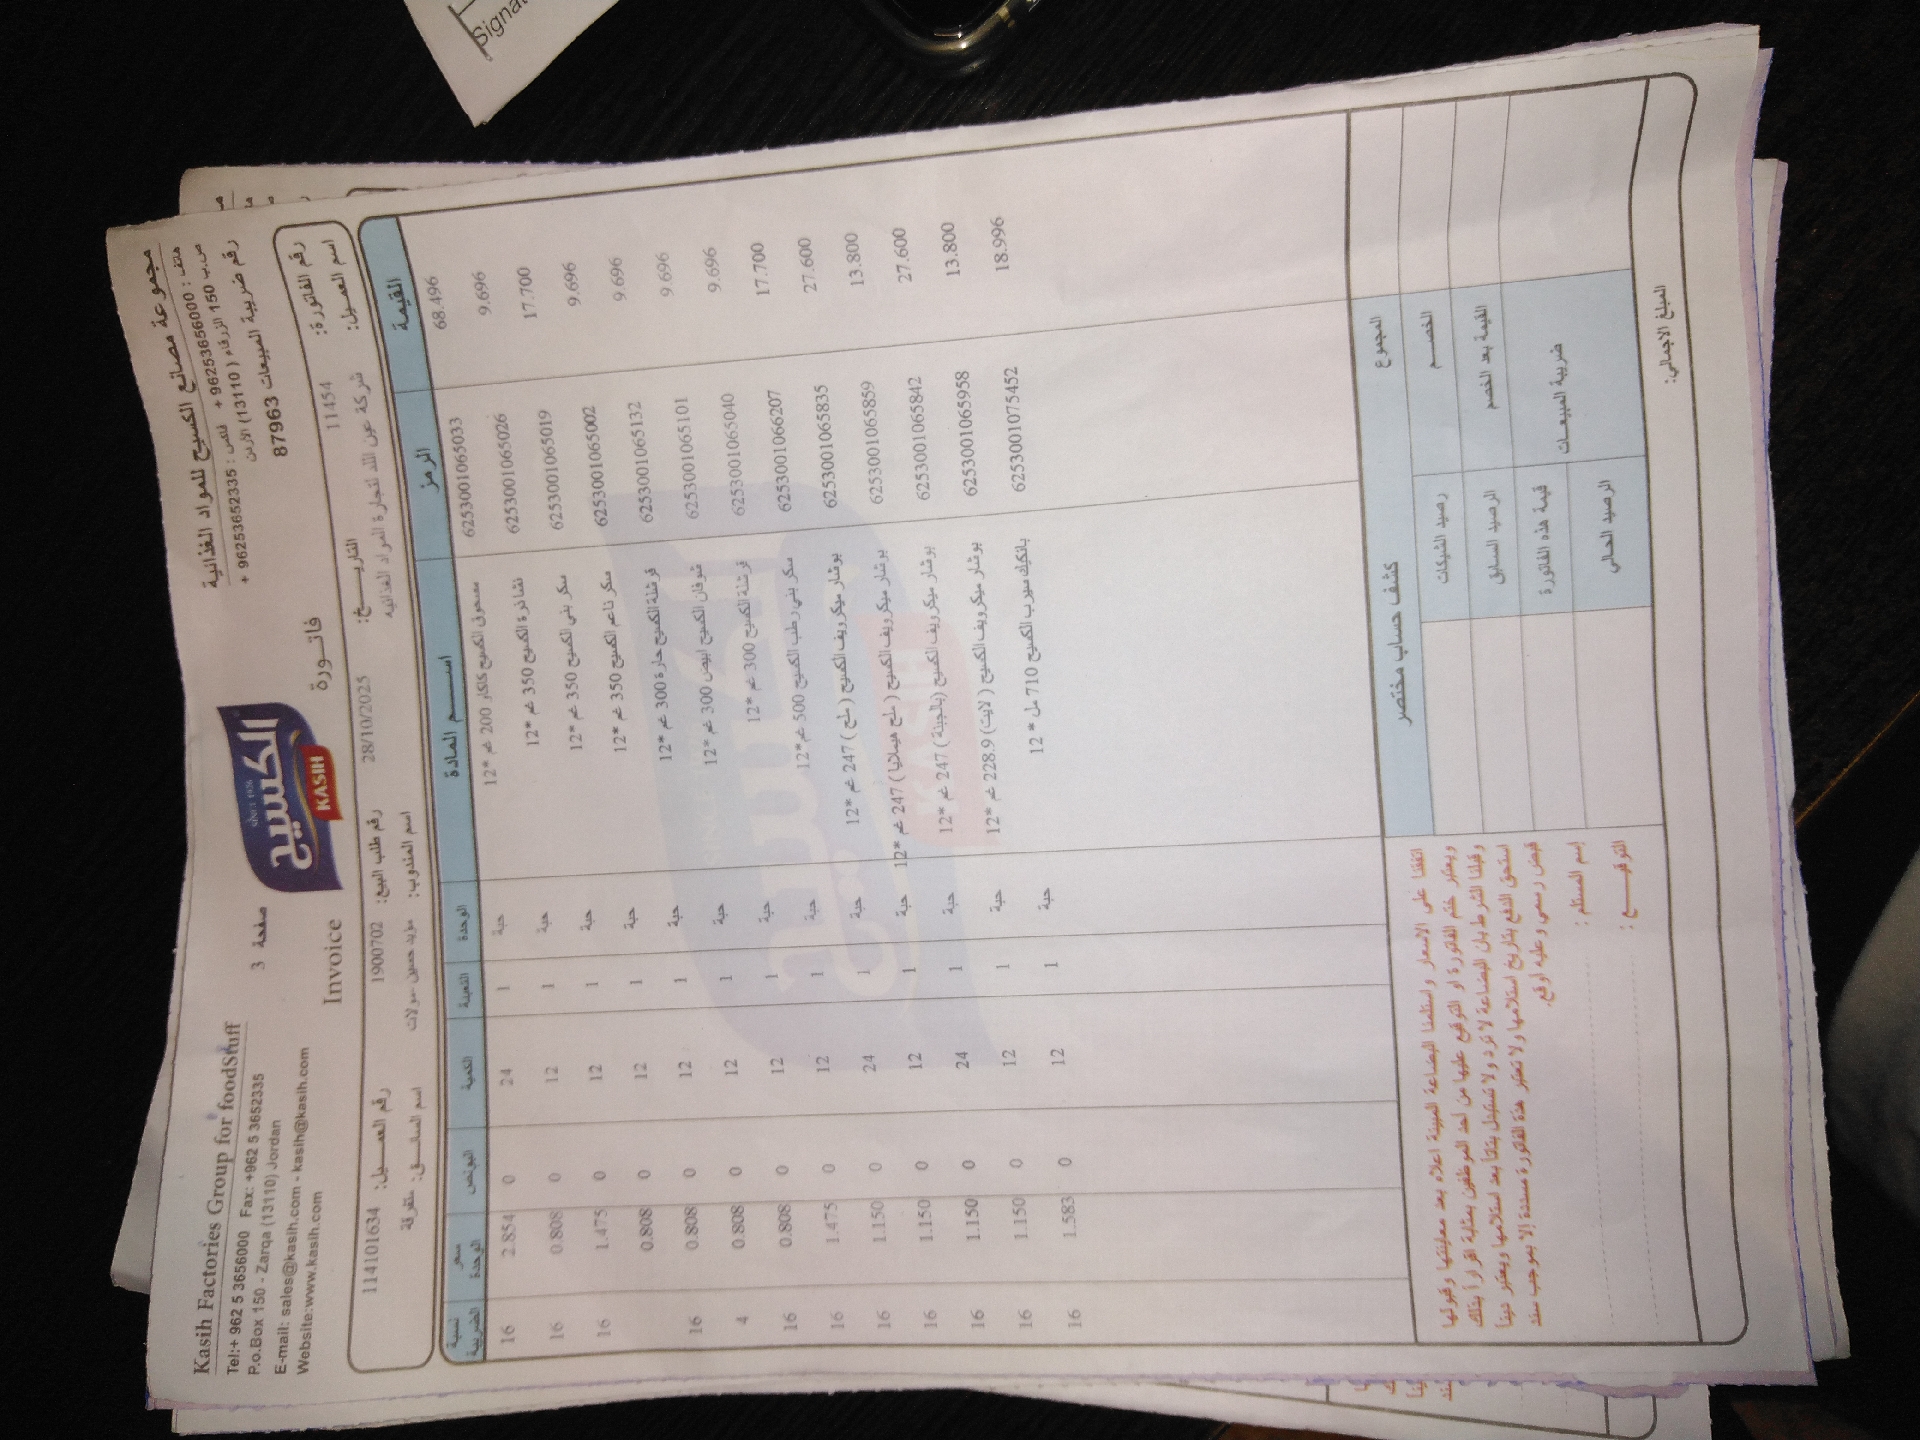 Signat
Kasih Factories Group for foodStuff
Tel:+ 962 5 3656000 Fax: +962 5 3652335
P.o.Box 150 - Zarqa (13110) Jordan
E-mail: sales@kasih.com - kasih@kasih.com
Website:www.kasih.com
صفحة 3
Invoice
SINCE 1926
الكسيح
KASIH
فاتــورة
مجموعة مصانع الكسيح للمواد الغذائية
هاتف : 96253656000 + فاكس : 96253652335 +
ص.ب 150 الزرقاء (13110) الأردن
رقم ضريبة المبيعات 87963
رقم الفاتورة: 11454 التاريــخ: 28/10/2025 رقم طلب البيع: 1900702 رقم العميل: 1141101634
اسم العميل: شركة عين اللد لتجارة المواد الغذائية اسم المندوب: مؤيد حسين -مولات اسم السائق: متفرقة
القيمة الرمز اســم المادة الوحدة التعبئة الكمية البونص سعر الوحدة نسبة الضريبة
68.496 6253001065033 مسحوق الكسيح كاكاو 200 غم *12 حبة 1 24 0 2.854 16
9.696 6253001065026 نشا ذرة الكسيح 350 غم *12 حبة 1 12 0 0.808 16
17.700 6253001065019 سكر بني الكسيح 350 غم *12 حبة 1 12 0 1.475 16
9.696 6253001065002 سكر ناعم الكسيح 350 غم *12 حبة 1 12 0 0.808
9.696 6253001065132 فرشلة الكسيح حارة 300 غم *12 حبة 1 12 0 0.808 16
9.696 6253001065101 شوفان الكسيح ابيض 300 غم *12 حبة 1 12 0 0.808 4
9.696 6253001065040 فرشلة الكسيح 300 غم *12 حبة 1 12 0 0.808 16
17.700 6253001066207 سكر بني رطب الكسيح 500 غم*12 حبة 1 12 0 1.475 16
27.600 6253001065835 بوشار ميكرويف الكسيح ( ملح ) 247 غم *12 حبة 1 24 0 1.150 16
13.800 6253001065859 بوشار ميكرويف الكسيح ( ملح هيملايا ) 247 غم *12 حبة 1 12 0 1.150 16
27.600 6253001065842 بوشار ميكرويف الكسيح (بالجبنة ) 247 غم *12 حبة 1 24 0 1.150 16
13.800 6253001065958 بوشار ميكرويف الكسيح ( لايت) 228.9 غم *12 حبة 1 12 0 1.150 16
18.996 6253001075452 بانكيك سيرب الكسيح 710 مل * 12 حبة 1 12 0 1.583 16
المجموع
الخصــم
القيمة بعد الخصم
ضريبة المبيعـات
المبلغ الاجمالي:
كشف حساب مختصر
رصيد الشيكات
الرصيد السابق
قيمة هذه الفاتورة
الرصيد الحالي
اتفقنا على الاسعار واستلمنا البضاعة المبينة اعلاه بعد معاينتها وقبولها
ويعتبر ختم الفاتورة او التوقيع عليها من احد الموظفين بمثابة اقراراً بذلك
وقبلنا الشرط بان البضاعة لا ترد ولا تستبدل بتاتاً بعد استلامها ويعتبر ديننا
استحق الدفع بتاريخ استلامها ولا تعتبر هذه الفاتورة مسددة إلا بموجب سند
قبض رسمي وعليه اوقع.
إسم المستلم :
التوقيــــع :